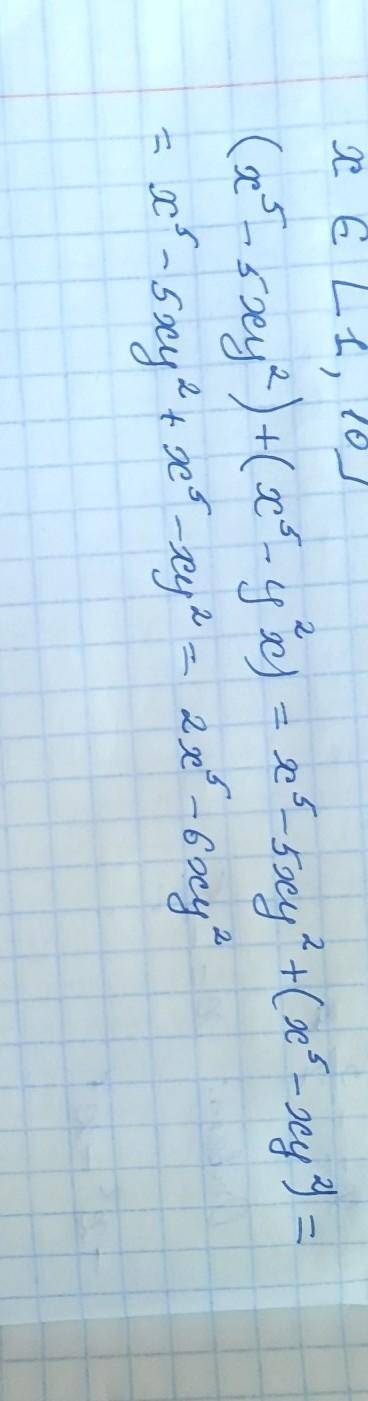 x ∈ [1, 10]
(x⁵ - 5xy²) + (x⁵ - y²x) = x⁵ - 5xy² + (x⁵ - xy²) =
= x⁵ - 5xy² + x⁵ - xy² = 2x⁵ - 6xy²